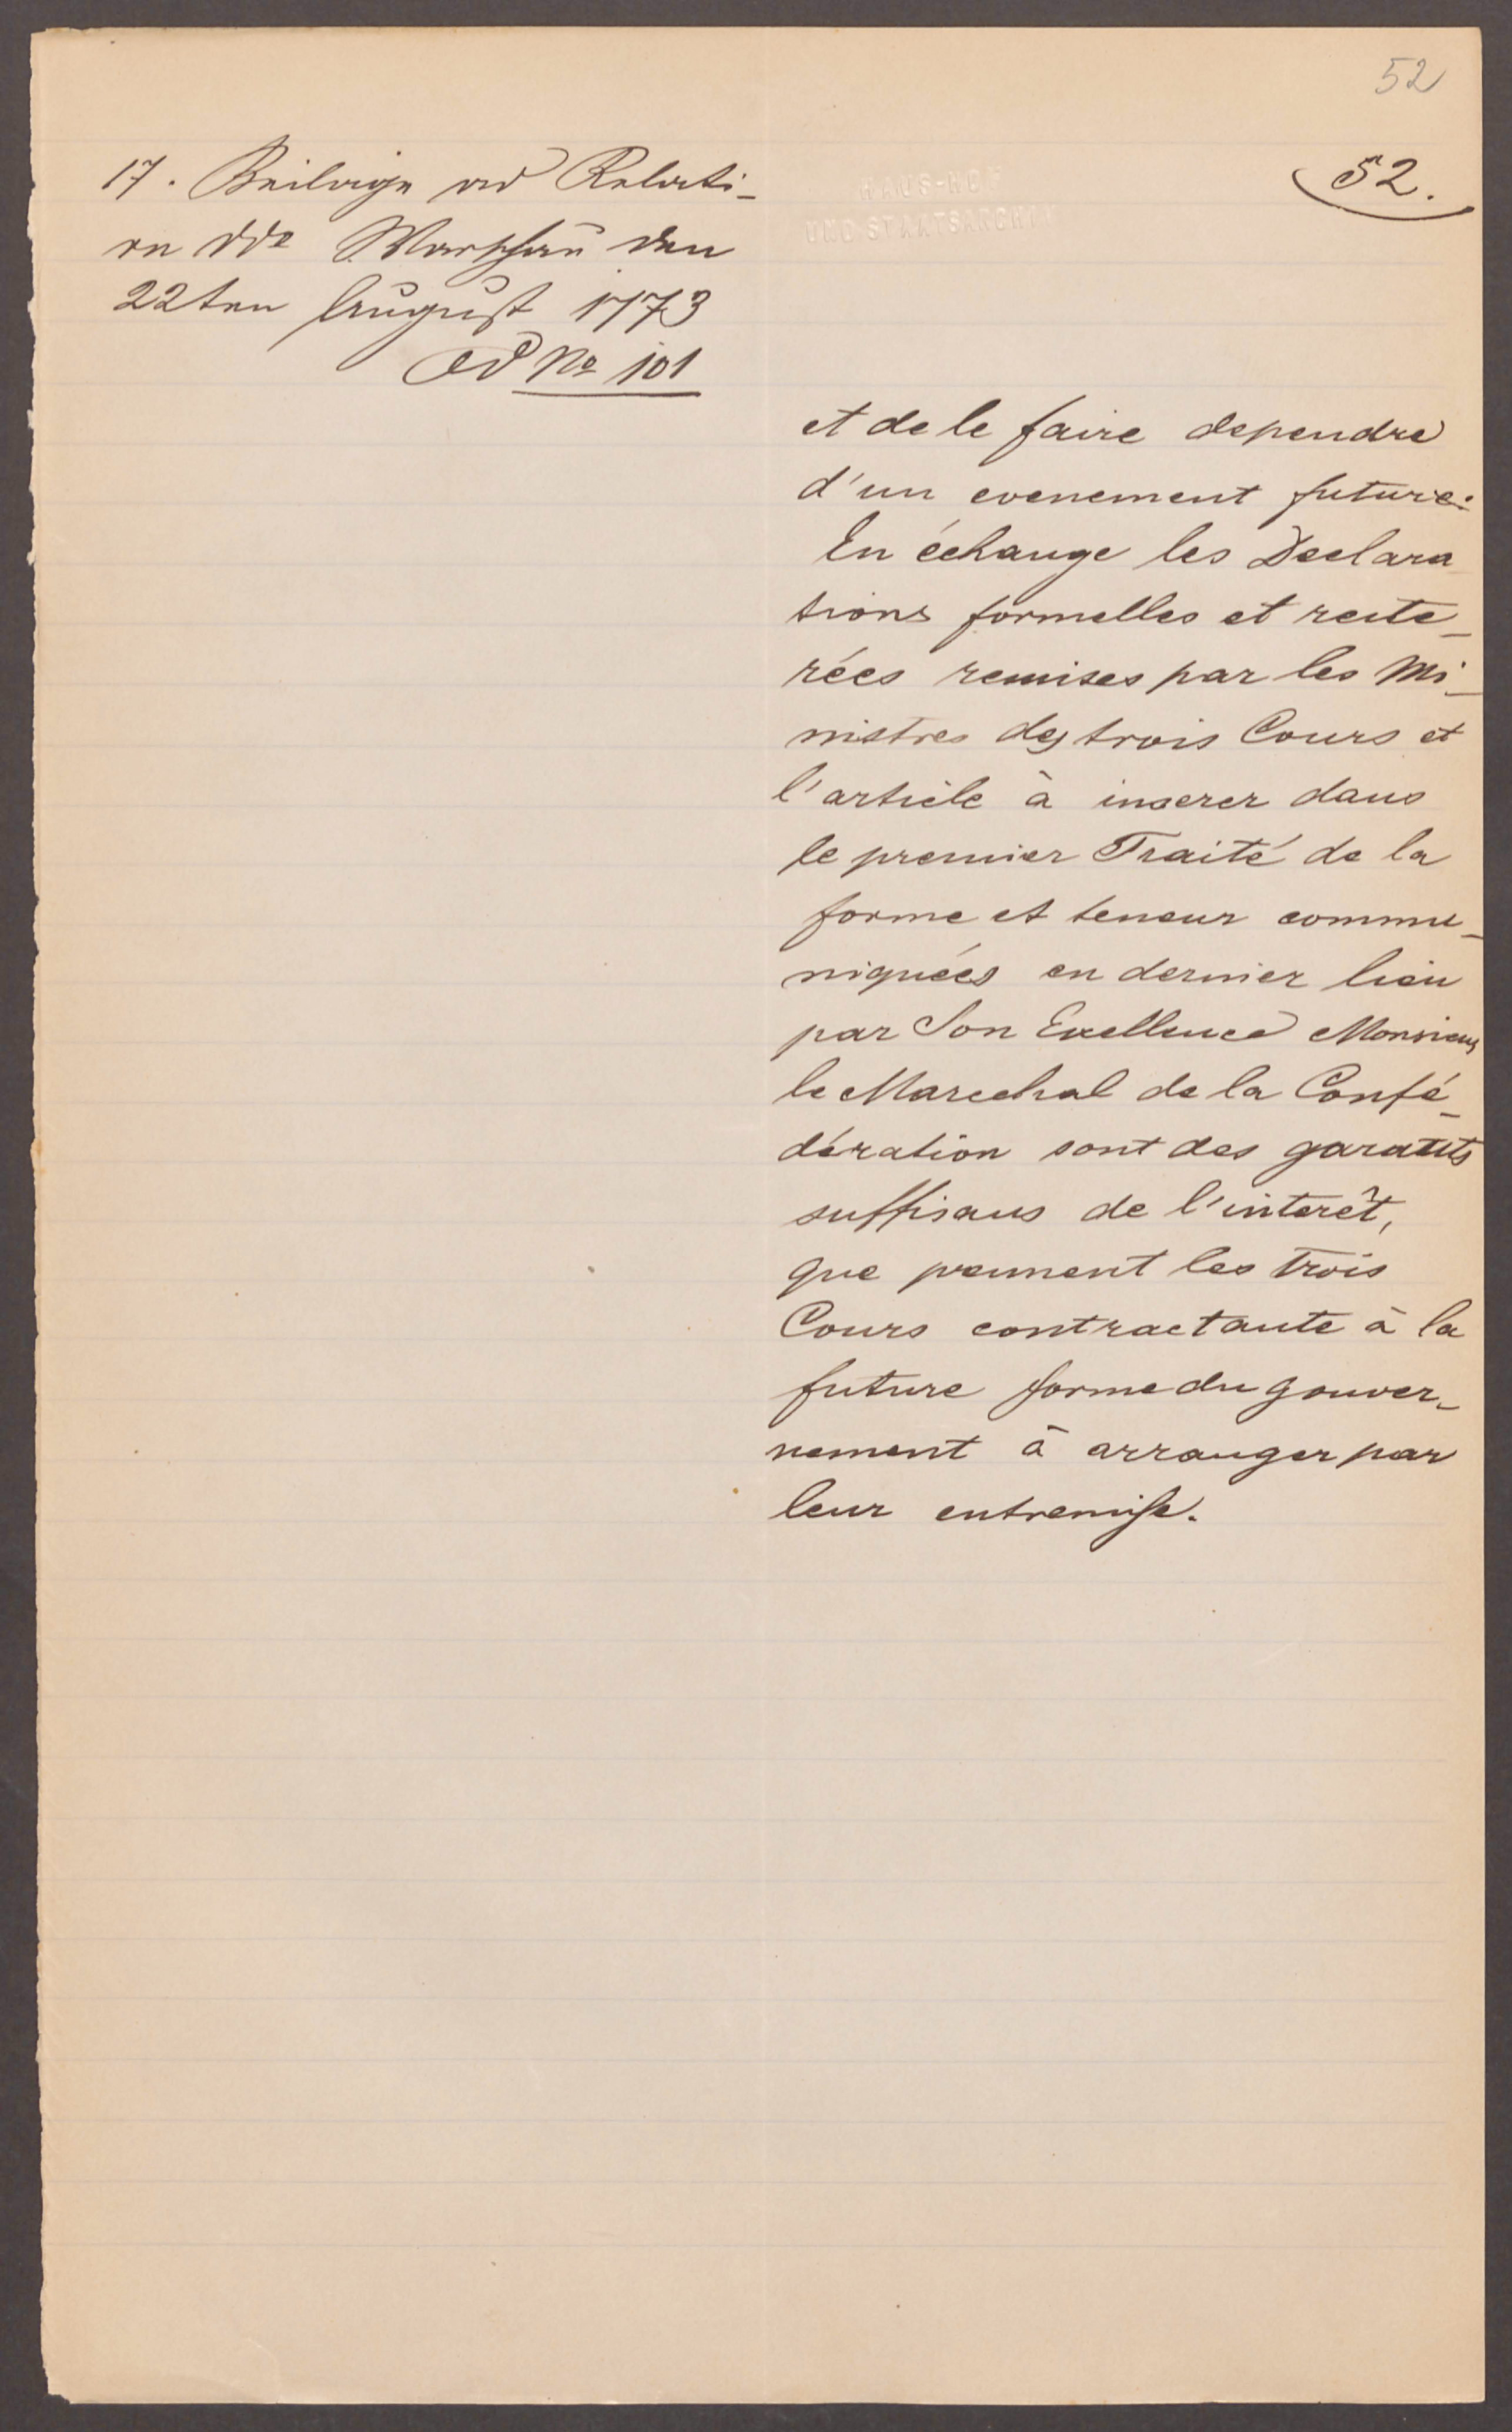 52
52.
17. Beilage ad Relati-
on ddo Warschau den
22ten August 1773
Ad No 101
HAUS-HOF
UND STAATSARCHIV
et de le faire dependre
d'un evenement future.
En échange les Declara
tions formelles et reite-
rées remises par les Mi-
nistres des trois Cours et
l'article à inserer dans
le premier Traité de la
forme et teneur commu-
niquées en dernier lieu
par Son Exellence Monsieur
le Marechal de la Confé-
dération sont des garants
suffisans de l'interêt,
que prennent les trois
Cours contractante à la
future forme du gouver-
nement à arranger par
leur entremise.